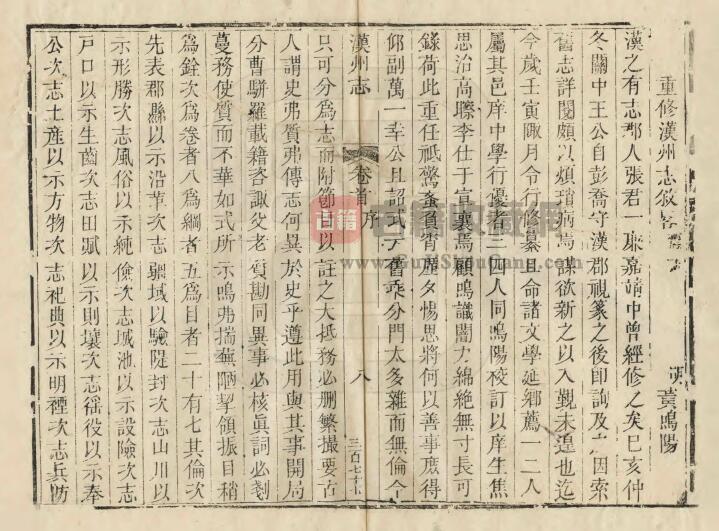 重修漢州志敘畧　明　黃鳴陽
漢之有志郡人張君一廉嘉靖中曾經修之矣已亥仲
冬關中王公自彭喬守漢郡視篆之後卽詢及之因索
舊志詳閱頗以煩瑣病焉謀欲新之以入覲未遑也迄
今歲壬寅陬月令行修纂且命諸文學延鄉薦一二人
屬其邑庠中學行優者三四人同鳴陽稜訂以庠生焦
思治高聯李仕于宣襄焉顧鳴識闇力綿絶無寸長可
錄荷此重任祗驚蚉負宵歷夕惕思將何以善事庶得
仰副萬一幸公且詔式示舊乘分門太多雜而無倫今
漢州志　卷首　序　八　三百七十七
只可分爲志而附節目以註之大抵務必删繁撮要古
人謂史弗質弗傳志何異於史乎遵此用與其事開局
分曹駢羅載籍咨諏父老質勘同異事必核眞詞必剗
蔓務使質而不華如式所示鳴弗揣蕪陋挈領振目稍
爲銓次爲卷者八爲綱者五爲目者二十有七其倫次
先表郡縣以示沿革次志疆域以驗隄封次志山川以
示形勝次志風俗以示純儉次志城池以示設險次志
戸口以示生齒次志田賦以示則壤次志徭役以示奉
公次志土產以示方物次志祀典以示明禋次志兵防
古籍收藏网
www.GuJiShouCang.com